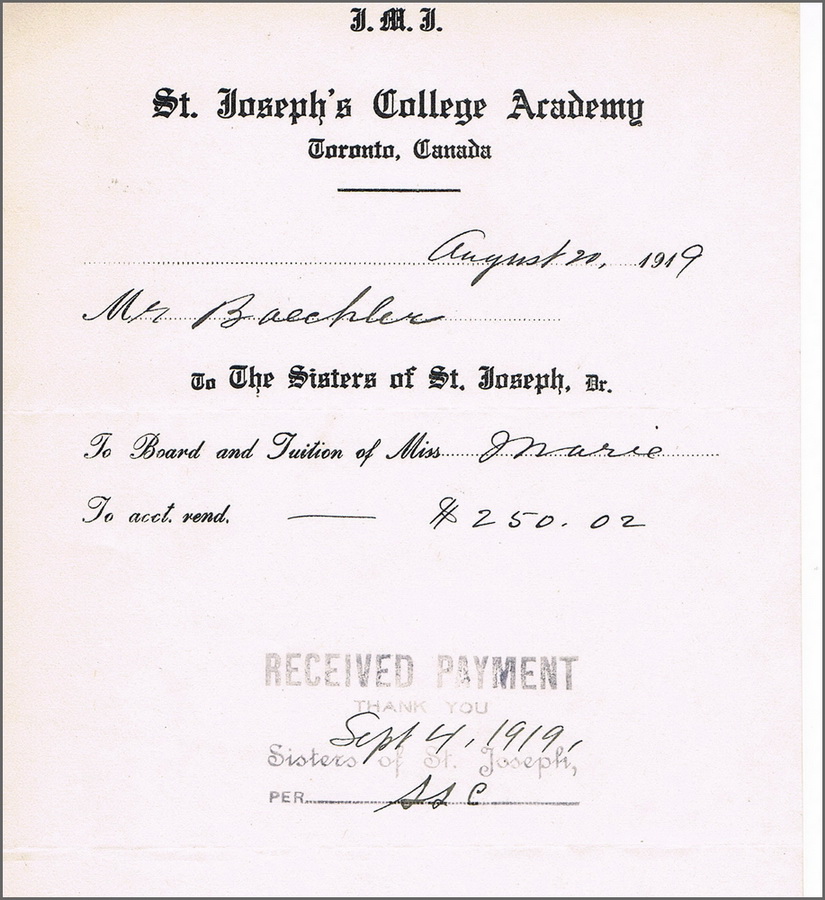 J. M. J.
St. Joseph's College Academy
Toronto, Canada
August 20, 1919
Mr Baechler
To The Sisters of St. Joseph, Dr.
To Board and Tuition of Miss Marie
To acct. rend. — $250.02
RECEIVED PAYMENT
THANK YOU
Sept 4, 1919,
Sisters of St. Joseph,
PER SSC